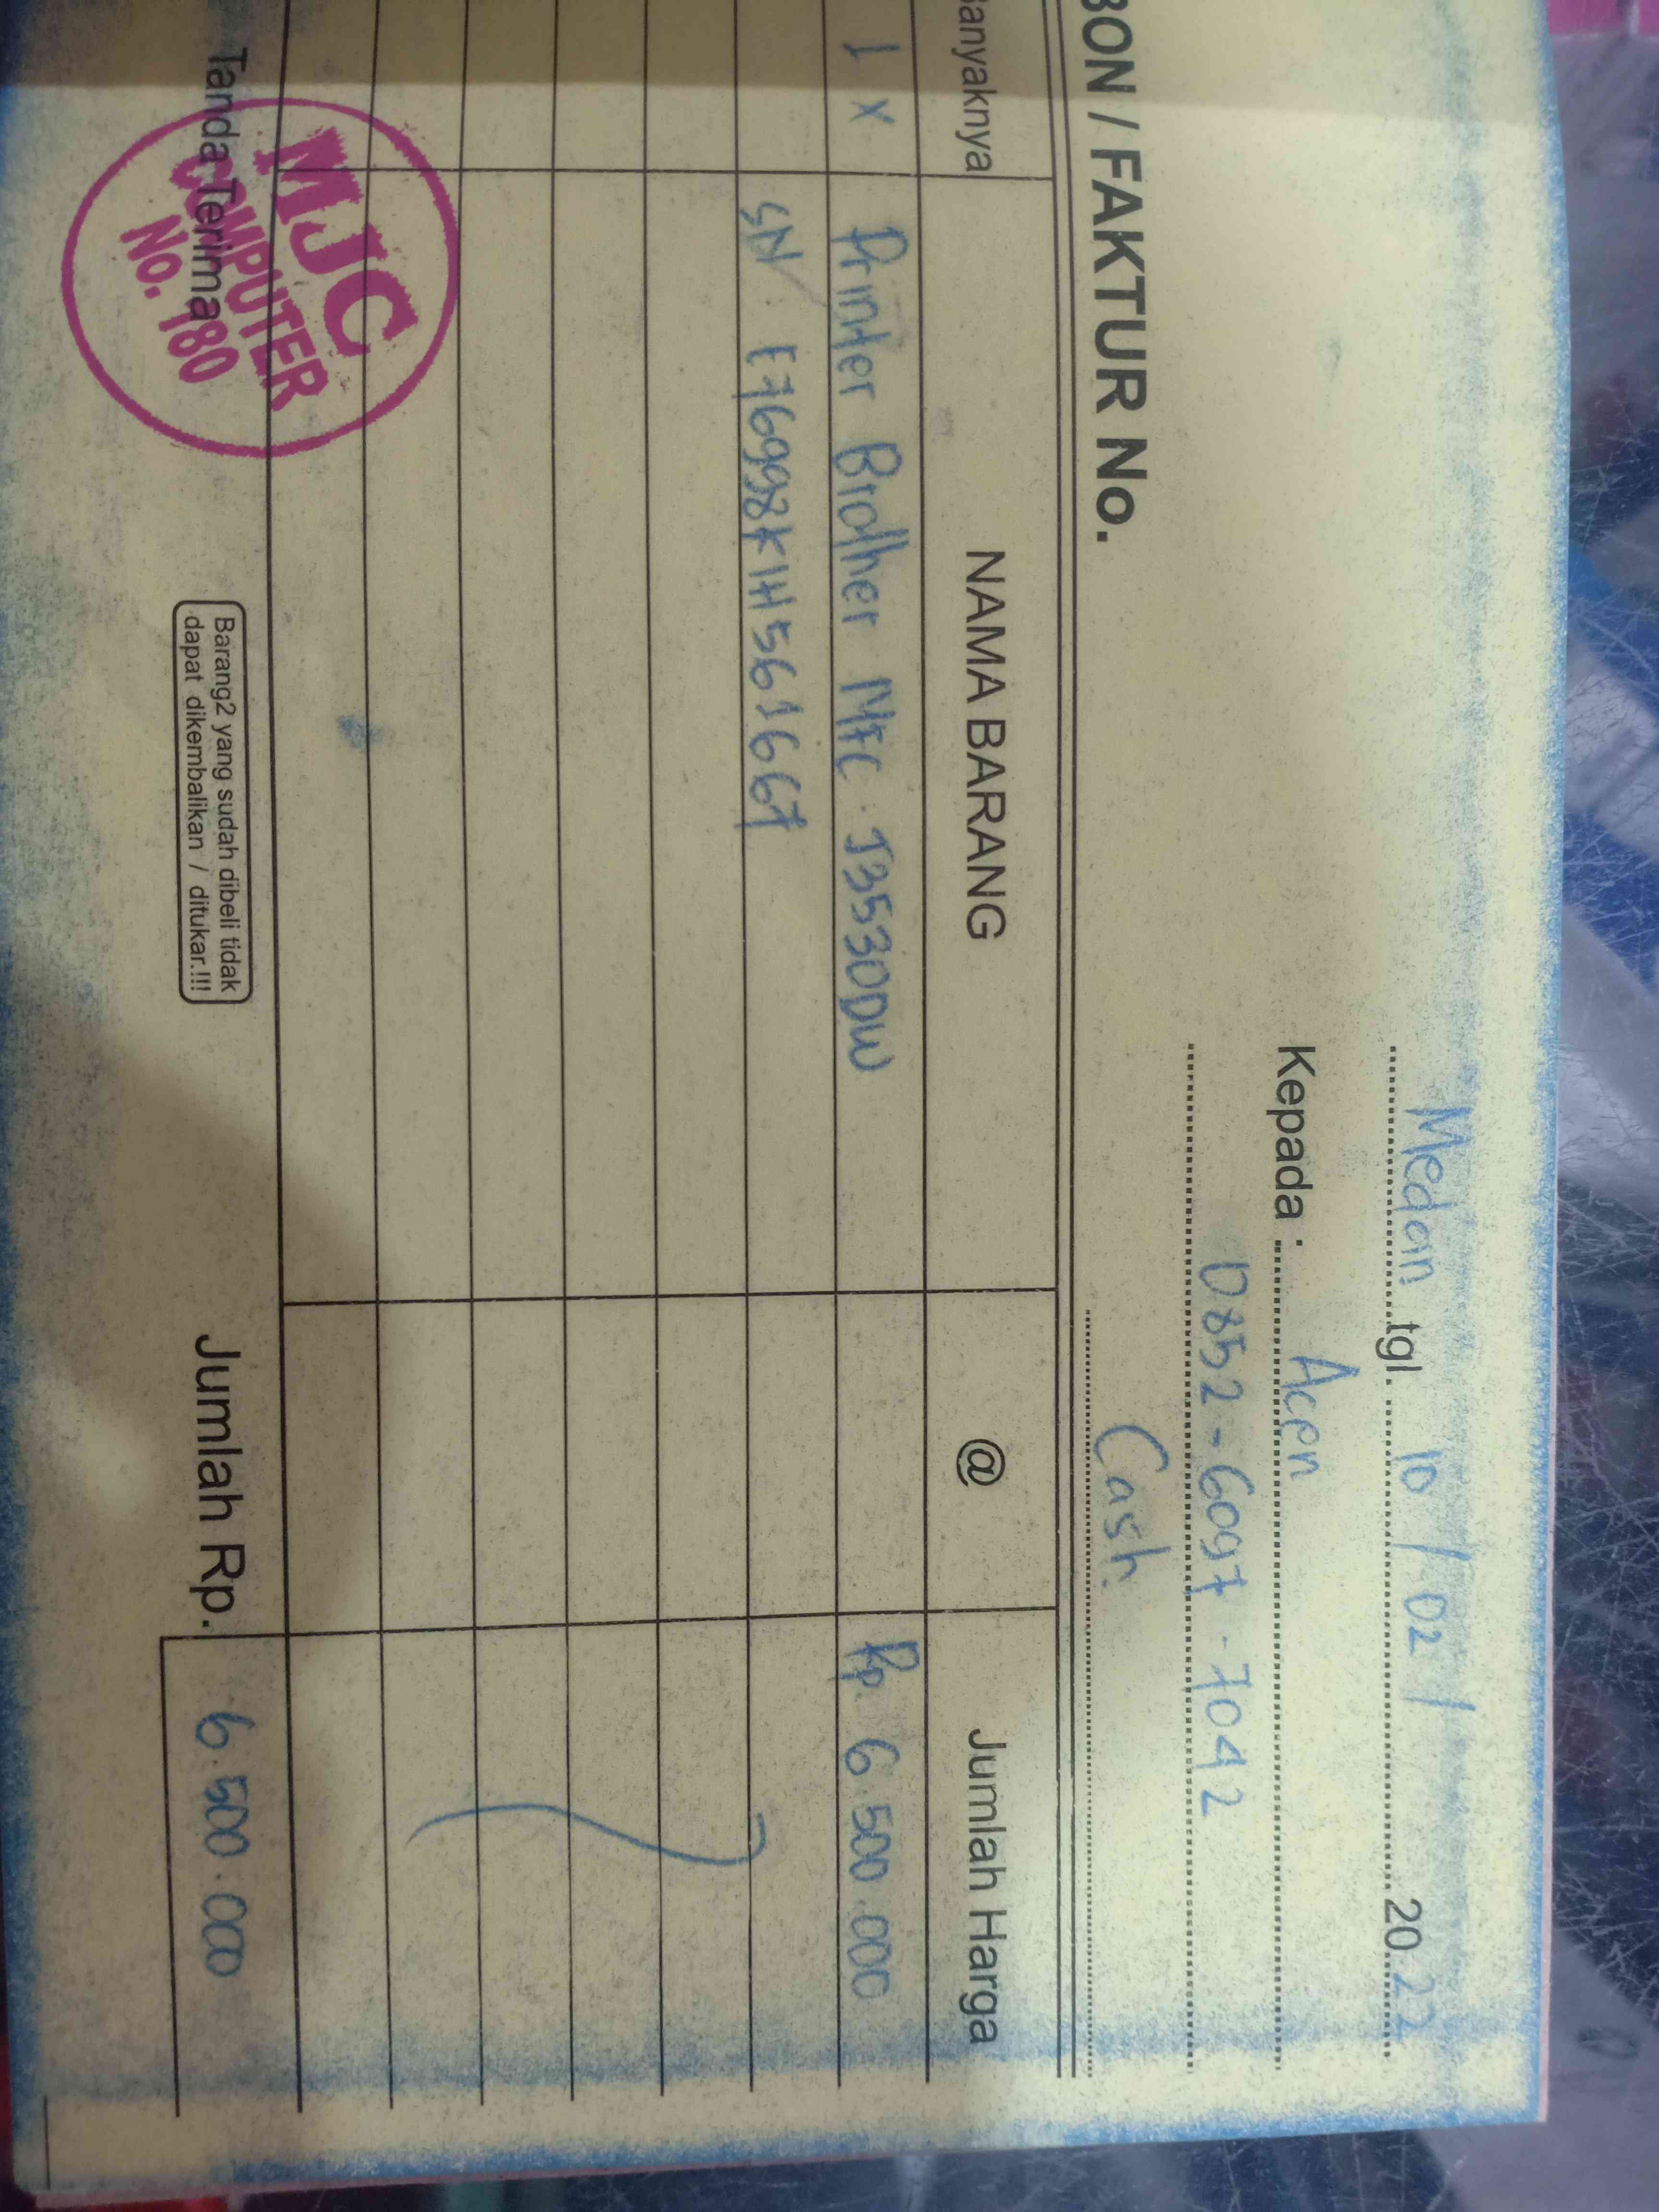 Medan tgl. 10 / 02 / 2022
Kepada : Acen
0852-6097-7042
BON / FAKTUR No.
Cash
Banyaknya NAMA BARANG @ Jumlah Harga
1 x Printer Brother Mfc. J3530DW Rp. 6.500.000
SN : E76998K1H561667
Tanda Terima
MJC
COMPUTER
No. 180
Barang2 yang sudah dibeli tidak
dapat dikembalikan / ditukar.!!!
Jumlah Rp. 6.500.000